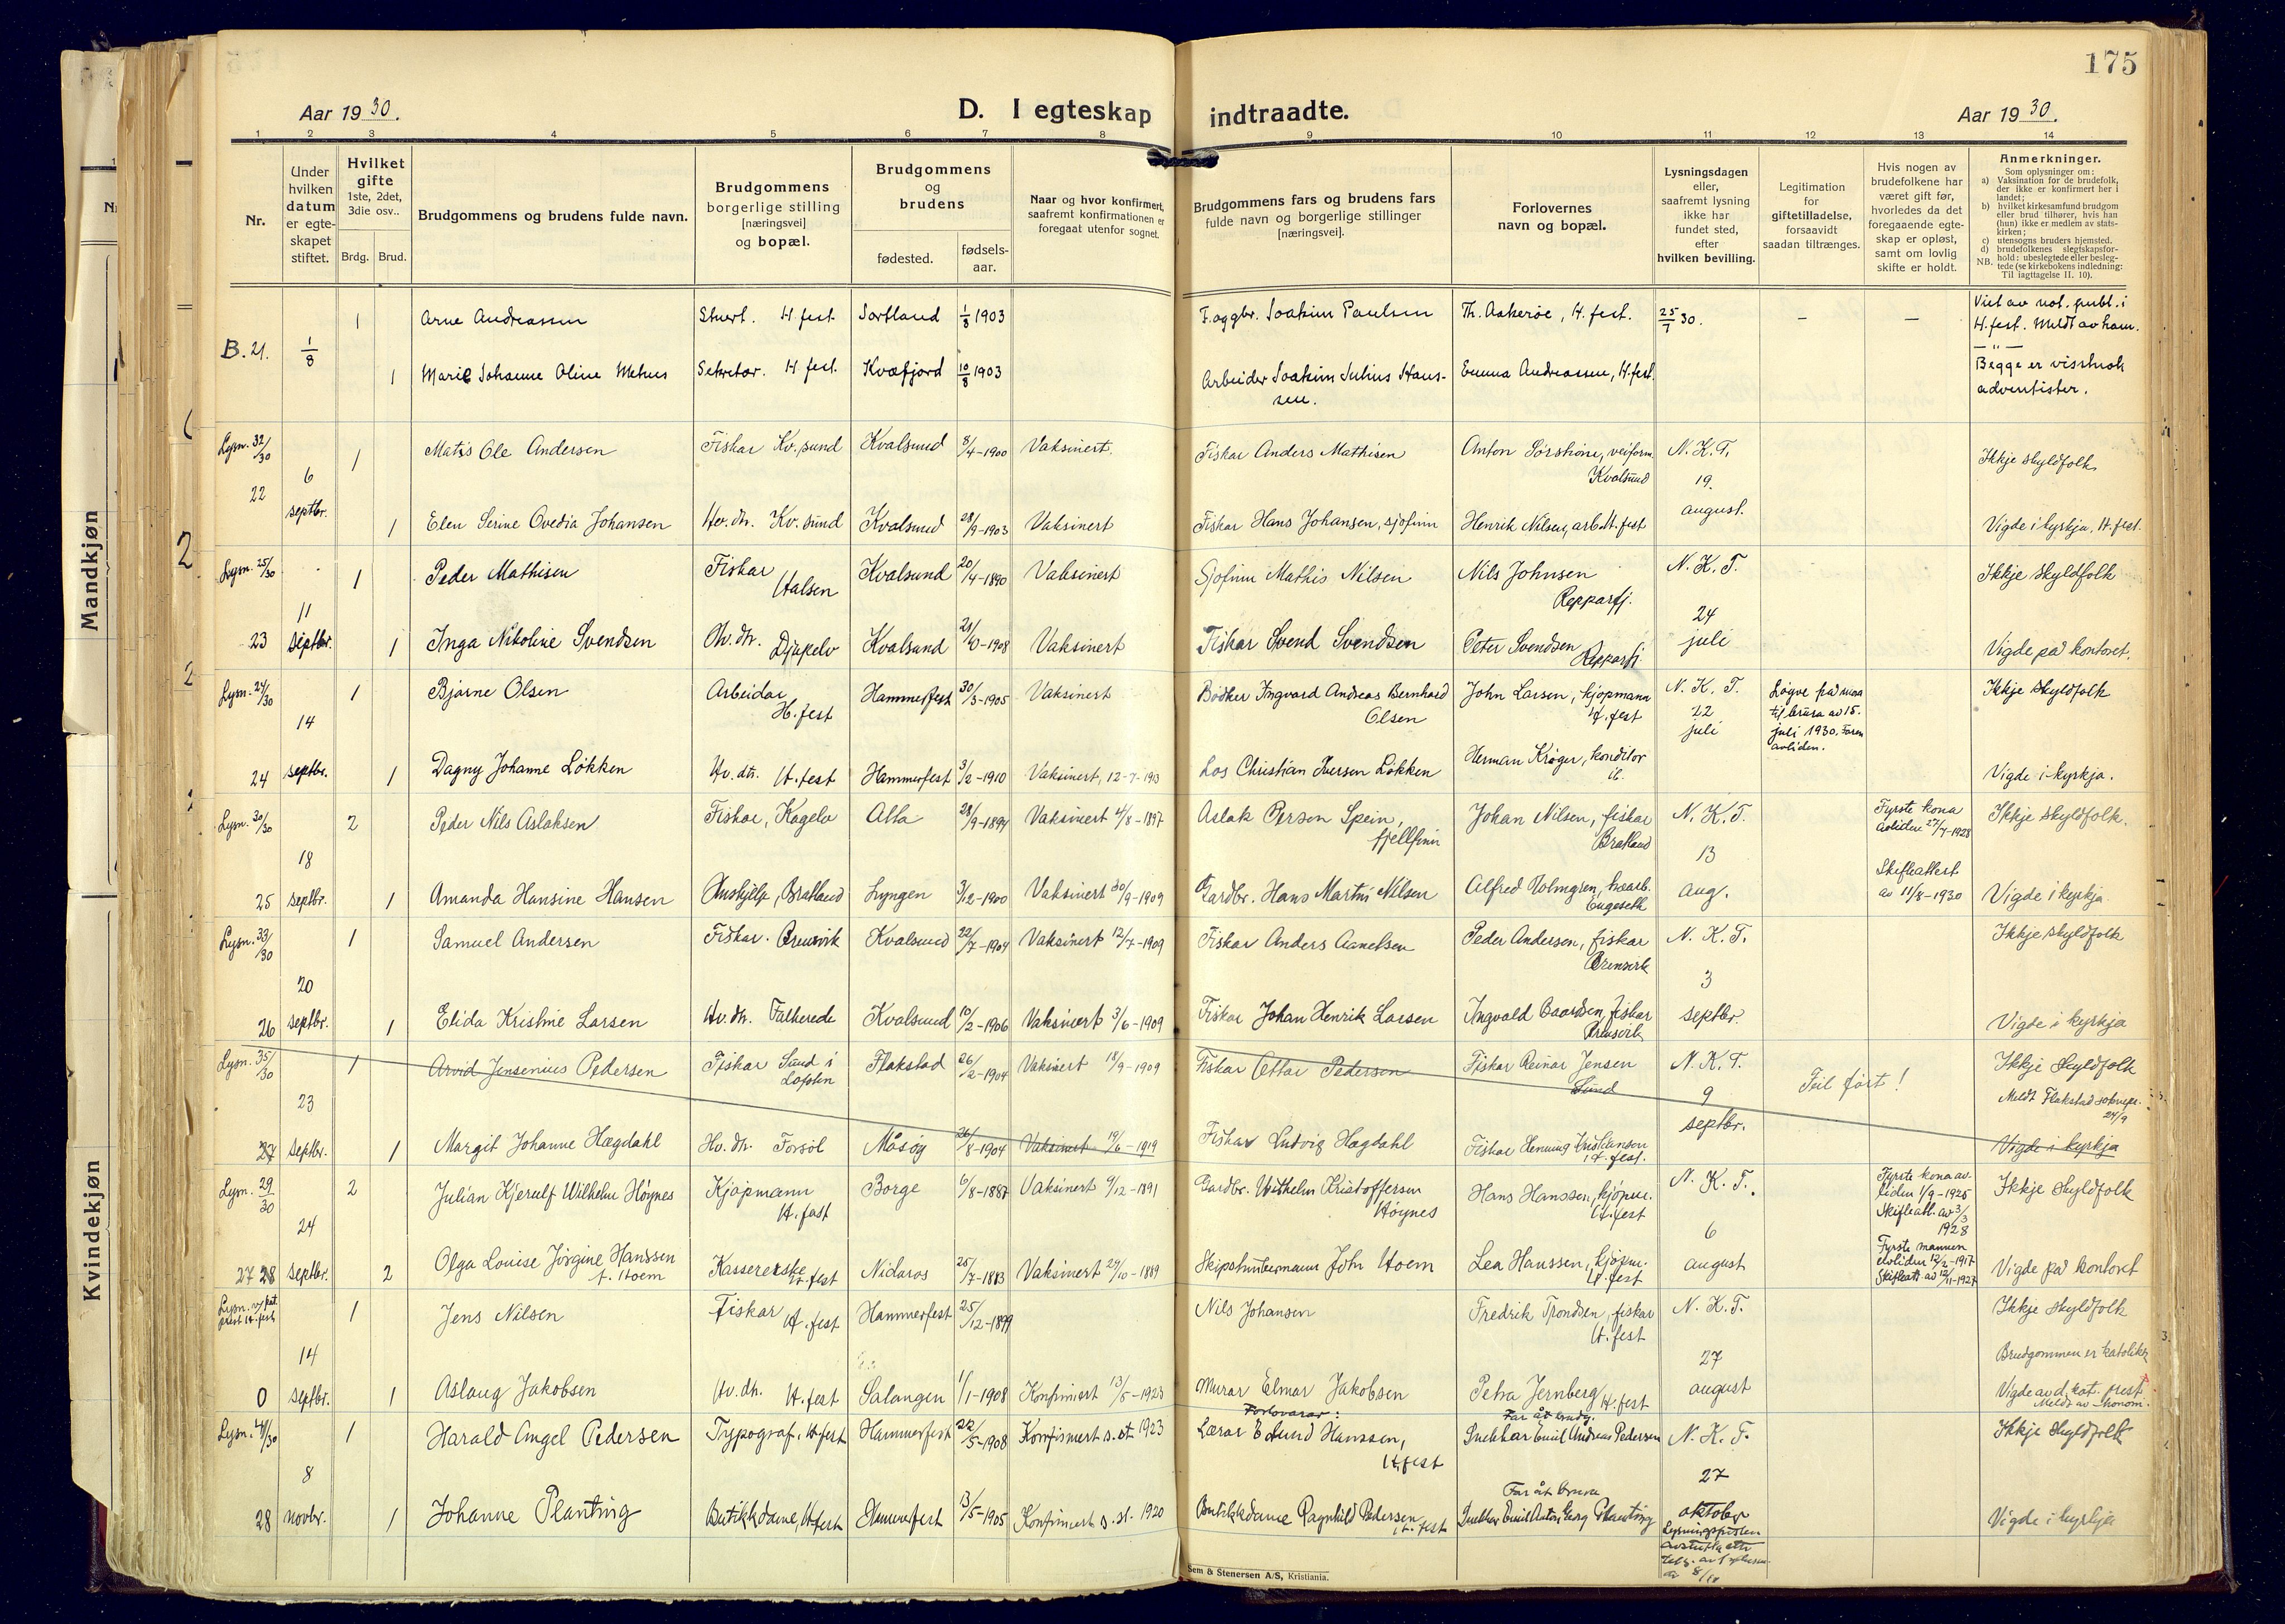 175
Aar 1930.
D. I egteskap indtraadte.
Aar 1930.
1 2 3 4 5 6 7 8 9 10 11 12 13 14
Nr.
Under hvilken datum er egteskapet stiftet.
Hvilket gifte
1ste, 2det, 3die osv..
Brdg. Brud.
Brudgommens og brudens fulde navn.
Brudgommens borgerlige stilling [næringsvei] og bopæl.
Brudgommens og brudens
fødested.
fødselsaar.
Naar og hvor konfirmert, saafremt konfirmationen er foregaat utenfor sognet.
Brudgommens fars og brudens fars fulde navn og borgerlige stillinger [næringsvei].
Forlovernes navn og bopæl.
Lysningsdagen eller, saafremt lysning ikke har fundet sted, efter hvilken bevilling.
Legitimation for giftetilladelse, forsaavidt saadan tiltrænges.
Hvis nogen av brudefolkene har været gift før, hvorledes da det foregaaende egteskap er opløst, samt om lovlig skifte er holdt.
Anmerkninger.
Som oplysninger om:
a) Vaksination for de brudefolk, der ikke er konfirmert her i landet;
b) hvilket kirkesamfund brudgom eller brud tilhører, hvis han (hun) ikke er medlem av statskirken;
c) utensogns bruders hjemsted.
d) brudefolkenes slegtskapsforhold: ubeslegtede eller beslegtede (se kirkebokens indledning: Til iagttagelse II. 10).
NB.
B. 21. 1/8
1 Arne Andreassen Stuert. H.fest. Sortland 1/8 1903 F. aggbr. Joakim Paulsen Th. Aakerøe, H.fest. 25/7 30. — — Viet av not. publ. i H.fest. Meldt av ham.
1 Marie Johanne Oline Mehus Sekretær. H.fest. Kvæfjord 10/8 1903 Arbeider Joakim Julius Hanssen. Emma Andreassen, H.fest. Begge er adventister.
Lysn. 32/30
22 6 septbr.
1 Matis Ole Andersen Fiskar Kv.sund Kvalsund 8/4-1900 Vaksinert. Fiskar Anders Mathisen Anton Kvalsund N. K. T. 19. august. Ikkje skyldfolk
1 Elen Serine Ovedia Johansen Hv. dtr. Kv. sund Kvalsund 28/9-1903 Vaksinert Fiskar Hans Johansen, sjøfinn Henrik Nilsen, arb. H.fest Vigde i kyrkja, H.fest.
Lysn. 25/30
23 11 septbr.
1 Peder Mathisen Fiskar Halsen Kvalsund 20/4-1890 Vaksinert Sjøfinn Mathis Nilsen Nils Johnsen Repparfj. N. K. T. 24 juli Ikkje skyldfolk
1 Inga Nikoline Svendsen Hv. dtr. Djupelv Kvalsund 21/10-1908 Vaksinert Fiskar Svend Svendsen Peter Svendsen Repparfj. Vigde på kontoret.
Lysn. 24/30
24 14 septbr.
1 Bjarne Olsen Arbeidar H.fest Hammerfest 30/3-1905 Vaksinert Bødker Ingvard Andreas Bernhard Olsen John Larsen, kjøpmann H.fest N. K. T. 22 juli Løyve frå mora til brura av 15. juli 1930. Faren avliden. Ikkje skyldfolk
1 Dagny Johanne Løkken Hv. dtr. H.fest Hammerfest 3/2-1910 Vaksinert, 12-7-1913 Los Christian Iversen Løkken Herman Krøger, konditor ib. Vigde i kyrkja.
Lysn. 30/30
25 18 septbr.
2 Peder Nils Aslaksen Fiskar, Kagelv Alta 28/9-1894 Vaksinert 4/8-1897 Aslak Persen Spein, fjellfinn Johan Nilsen, fiskar Bratland N. K. T. 13 aug. Fyrste kona avliden 27/7-1928 Skifteattest av 11/8-1930 Ikkje skyldfolk.
1 Amanda Hansine Hansen Hushjelp, Bratland Lyngen 3/12-1900 Vaksinert 30/9-1909 Gardbr. Hans Martin Nilsen Alfred Holmgren, Engeseth Vigde i kyrkja
Lysn. 33/30
26 20 septbr.
1 Samuel Andersen Fiskar. Kvalsund 22/7-1904 Vaksinert 12/7-1909 Fiskar Anders Peder Andersen, fiskar N. K. T. 3 septbr. Ikkje skyldfolk
1 Elida Kristine Larsen Hv. dtr. Kvalsund 10/2-1906 Vaksinert 3/6-1909 Fiskar Johan Henrik Larsen Ingvald Baardsen, fiskar Vigde i kyrkja
Lysn. 35/30
27 23 septbr.
1 Arvid Jensenius Pedersen Fiskar Sund i Lofoten Flakstad 26/2-1904 Vaksinert 18/9-1909 Fiskar Ottar Pedersen Fiskar Reinar Jensen Sund N. K. T. 9 septbr. Feil ført! Ikkje skyldfolk Meldt Flakstad 24/9
1 Margit Johanne Hægdahl Hv. dtr. Forsøl Måsøy 26/8-1904 Vaksinert 19/6-1919 Fiskar Ludvig Hægdahl Fiskar Henning Kristiansen H.fest. Vigde i kyrkja
Lysn. 29/30
27 28 24 septbr.
2 Julian Kjerulf Wilhelm Höynes Kjøpmann H.fest Borge 6/8-1887 Vaksinert 9/12-1891 Gardbr. Wilhelm Kristoffersen Höynes Hans Hanssen, kjøpm. H.fest N. K. T. 6 august Fyrste kona avliden 1/9-1925 Skifteatt. av 3/3 1928 Ikkje skyldfolk
2 Olga Louise Jørgine Hanssen f. Hoem Kassererske H.fest Nidaros 25/7-1883 Vaksinert 24/10-1889 Skipstømmermann John Hoem Lea Hanssen, kjøpm. H.fest Fyrste mannen avliden 12/2-1917 Skifteatt. av 12/11-1927 Vigde på kontoret
Lysn. v/ kat. prest H.fest
0 14 septbr.
1 Jens Nilsen Fiskar H.fest Hammerfest 25/12-1899 Nils Johansen Fredrik Trondsen, fiskar H.fest N. K. T. 27 august Ikkje skyldfolk Brudgommen er katolikk
1 Aslaug Jakobsen Hv. dtr. H.fest Salangen 1/1-1908 Konfirmert 13/5-1923 Murar Elmar Jakobsen Petra Jernberg H.fest Vigde av d. kat. prest
Lysn. 41/30
28 8 novbr.
1 Harald Angel Pedersen Typograf, H.fest Hammerfest 22/5-1908 Konfirmert s. st. 1923 Forlovarar: Lærar Edlund Hanssen, H.fest Far åt brudg. Snekkar Emil Andreas Pedersen N. K. T. 27 oktober Ikkje skyldfolk
1 Johanne Planting Butikkdame, H.fest Hammerfest 13/5-1905 Konfirmert s. st. 1920 Butikkdame Ragnhild Pedersen H.fest Far åt brura Snekkar Emil Anton Georg Planting Vigde i kyrkja
Mandkjøn
Kvindekjøn
Sem & Stenersen A/S, Kristiania.